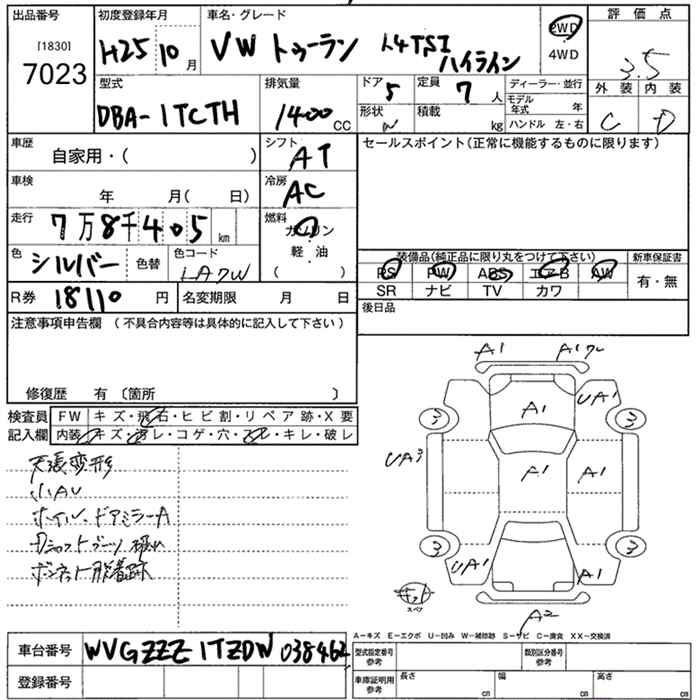 出品番号 初度登録年月 車名・グレード 評価点
[1830] 7023 H25 10月 VW トゥーラン 1.4TSI ハイライン 2WD 4WD 3.5
型式 排気量 ドア 5 定員 7人 ディーラー・並行 外装 内装
DBA-1TCTH 1400CC 形状 W 積載 kg モデル年式 年 C D
ハンドル 左・右
車歴 自家用・( ) シフト AT セールスポイント(正常に機能するものに限ります)
車検 年 月( 日) 冷房 AC
走行 7万8千405km 燃料 ガソリン
軽・油
( )
色 シルバー 色替 色コード LA7W 装備品(純正品に限り丸をつけて下さい) 新車保証書
PS PW ABS エアB AW 有・無
SR ナビ TV カワ
R券 18110円 名変期限 月 日 後日品
注意事項申告欄(不具合内容等は具体的に記入して下さい)
修復歴 有〔箇所 〕
検査員 FW キズ・飛石・ヒビ割・リペア跡・X要
記入欄 内装 キズ・汚レ・コゲ・穴・スレ・キレ・破レ
天張変形
小AU
ホイル、ドアミラーA
Dシャフトブーツ破れ
ボンネット脱着跡
A1
UA1
A1
3 3
UA3 A1 A1
3 3
UA1 A1
キット
スペア
A2
A-キズ E-エクボ U-凹み W-補修跡 S-サビ C-腐食 XX-交換済
車台番号 WVGZZZ1TZDW038462 型式指定番号 参考 類別区分番号 参考
登録番号 車庫証明用 参考 長さ cm 幅 cm 高さ cm